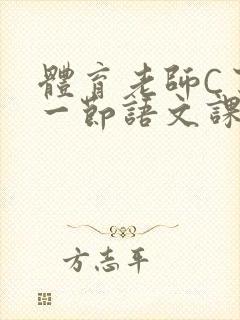 體育老師C
一節語文課
方志平